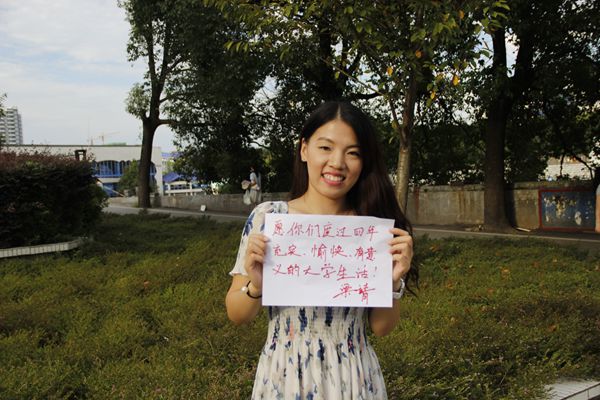 愿你们度过四年
充实、愉快、有意
义的大学生活！
梁靖